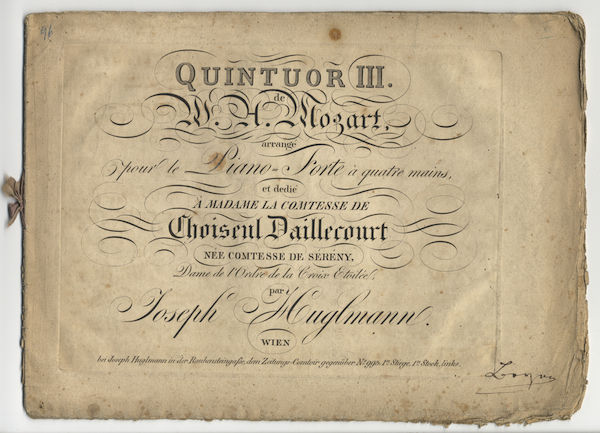 96
QUINTUOR III.
de
W. A. Mozart,
arrangé
pour le Piano=Forte à quatre mains,
et dedié
À MADAME LA COMTESSE DE
Choiseul Daillecourt
NEE COMTESSE DE SERÉNY,
Dame de l'Ordre de la Croix Etoilée,
par
Joseph Huglmann.
WIEN
bei Joseph Huglmann in der Rauhensteingaße, dem Zeitungs-Comtoir gegenüber No. 993. 1te Stiege, 1te Stock, links.